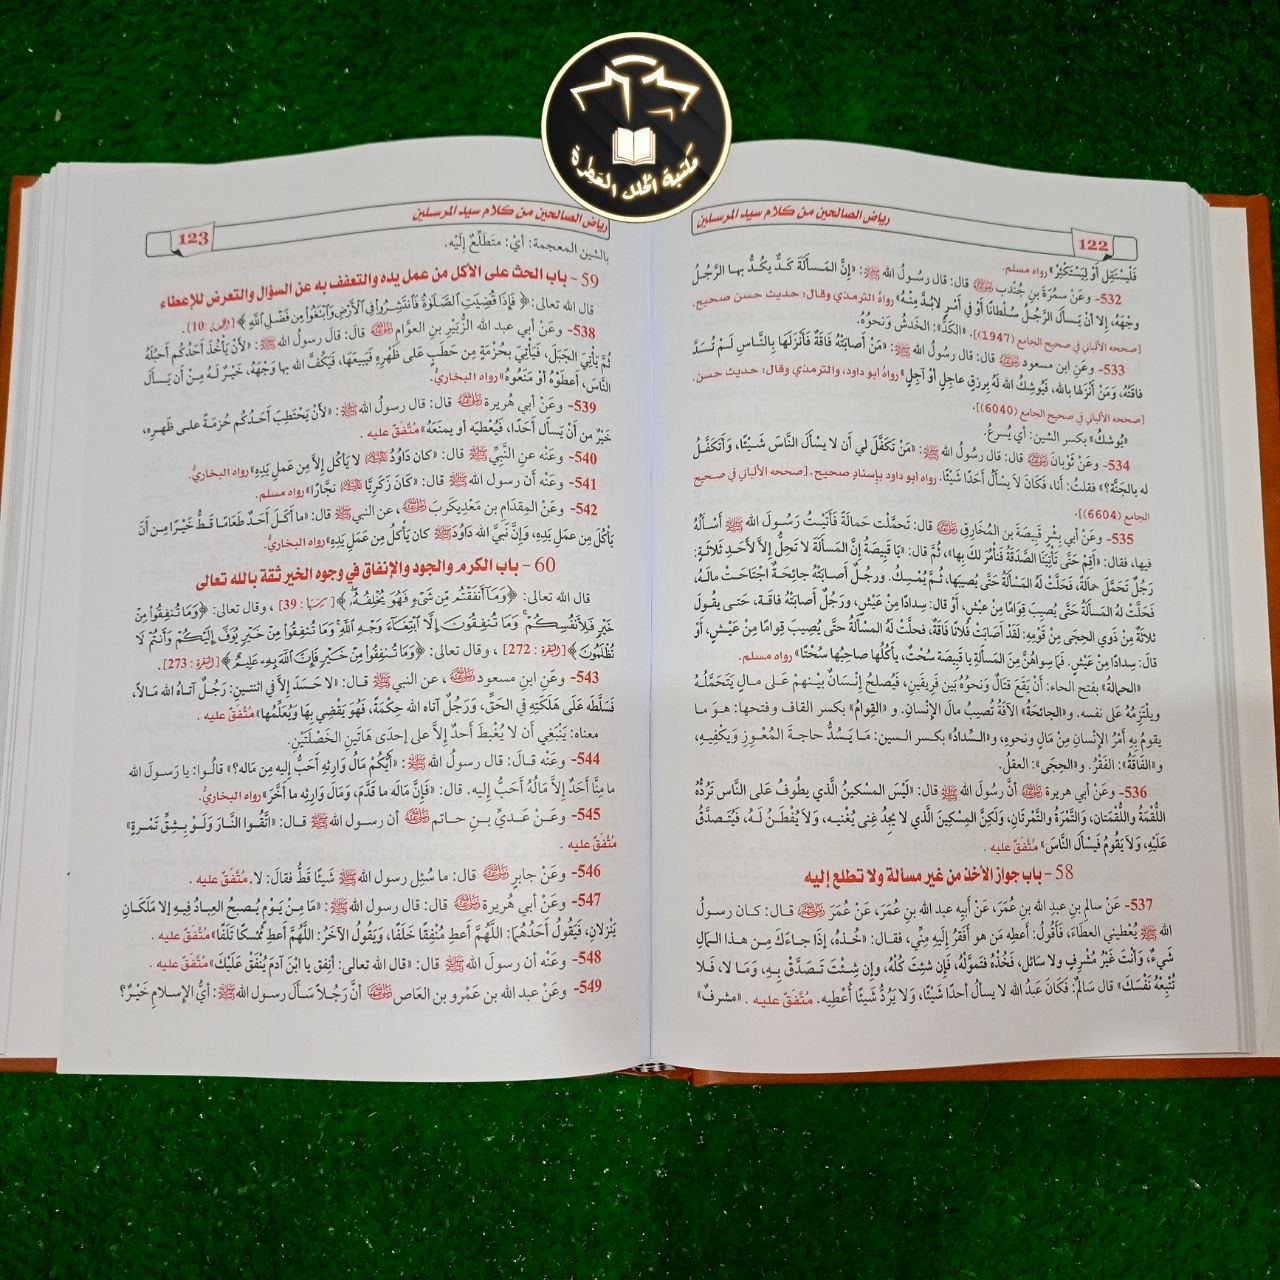 مكتبة الحلل العطرة
رياض الصالحين من كلام سيد المرسلين
122
فَلْيَسْتَقِلَّ أَوْ لِيَسْتَكْثِرْ» رواه مسلم.
532- وعَنْ سمُرَةَ بنِ جُنْدبٍ ﵁ قال: قال رسولُ الله ﷺ: «إِنَّ المَسأَلَةَ كَدٌّ يكُدُّ بها الرَّجُلُ
وجْهَهُ، إِلاَّ أَنْ يَسأَلَ الرَّجُلُ سُلْطانًا أَوْ في أَمْرٍ لابُدَّ مِنْهُ» رواهُ الترمذي وقال: حديث حسن صحيح.
[صححه الألباني في صحيح الجامع (1947)]. «الكَدُّ»: الخَدشُ وَنحوُهُ.
533- وعَنِ ابن مسعودٍ ﵁ قال: قال رسُولُ الله ﷺ: «مَنْ أَصابَتْهُ فَاقَةٌ فَأَنْزَلَهَا بِالنَّاسِ لَمْ تُسَدَّ
فاقَتُهُ، وَمَنْ أَنْزَلَهَا بالله، فَيُوشِكُ الله لَهُ بِرِزقٍ عاجِلٍ أَوْ آجِلٍ» رواهُ أبو داود، والترمذي وقال: حديث حسن.
[صححه الألباني في صحيح الجامع (6040)].
«يُوشكُ» بكسر الشين: أي يُسرعُ.
534- وعَنْ ثَوْبانَ ﵁ قال: قال رسُولُ الله ﷺ: «مَنْ تَكَفَّلَ لي أن لا يسْأَلَ النَّاسَ شَيْئًا، وَأَتَكَفَّلُ
له بالجَنَّة؟» فقلتُ: أنا، فَكَانَ لاَ يسْأَلُ أَحَدًا شَيْئًا. رواه أبو داود بإسناد صحيح. [صححه الألباني في صحيح
الجامع (6604)].
535- وعَنْ أبي بِشْرٍ قَبِيصَةَ بن المُخَارِقِ ﵁ قال: تَحمَّلْت حَمَالَةً فَأَتَيْتُ رَسُولَ الله ﷺ أَسْأَلُهُ
فيها، فقال: «أَقِمْ حَتَّى تَأْتِيَنَا الصَّدَقَةُ فَنَأْمُرَ لكَ بِها»، ثُمَّ قال: «يَا قَبِيصَةُ إِنَّ المَسأَلَةَ لا تَحِلُّ إِلاَّ لأَحَدِ ثَلاثَةٍ:
رَجُلٌ تَحَمَّلَ حمالَةً، فَحَلَّتْ لَهُ المَسْأَلَةُ حَتَّى يُصيبَها، ثُمَّ يُمْسِكُ. ورجُلٌ أَصابَتْهُ جائِحَةٌ اجْتَاحَتْ مالَهُ،
فَحَلَّتْ لهُ المَسأَلَةُ حَتَّى يُصِيبَ قِوَامًا مِنْ عيْشٍ، أَوْ قال: سِدادًا مِنْ عَيْشٍ، ورَجُلٌ أَصابَتْهُ فاقَة، حَتى يقُولَ
ثلاثَةٌ مِنْ ذَوي الحِجَى مِنْ قَوْمِهِ: لَقَدْ أَصَابَتْ فُلانًا فَاقَةٌ، فحلَّتْ لَهُ المسْأَلةُ حتَّى يُصِيبَ قِوامًا مِنْ عَيْشٍ، أَوْ
قالَ: سِدادًا مِنْ عَيْشٍ. فَمَا سِواهُنَّ مِنَ المَسأَلَةِ يا قَبِيصَةُ سُحْتٌ، يأكُلُها صاحِبُها سُحْتًا» رواه مسلم.
«الحمالَةُ» بفتح الحاء: أَنْ يَقَعَ قتَالٌ وَنحوُهُ بَين فَرِيقَينِ، فَيُصلحُ إِنْسَانٌ بيْنهمْ عَلى مالٍ يَتَحَمَّلُهُ
ويلْتَزِمُهُ عَلى نفسه. و«الجائِحَةُ» الآفَةُ تُصيبُ مالَ الإِنْسانِ. و «القِوامُ» بكسر القاف وفتحها: هو ما
يقومُ بِهِ أَمْرُ الإِنسانِ مِنْ مَالٍ ونحوِهِ، و«السِّدادُ» بكسر السين: مَا يَسُدُّ حاجةَ المُعْوِزِ ويَكْفِيهِ،
و«الفَاقَةُ»: الفَقْرُ. و«الحِجَى»: العقلُ.
536- وعَنْ أبي هريرة ﵁ أَنَّ رسُولَ الله ﷺ قال: «لَيْسَ المسْكينُ الَّذي يطُوفُ عَلى النَّاسِ تَرُدُّهُ
اللُّقْمَةُ واللُّقْمَتان، وَالتَّمْرَةُ والتَّمْرتَانِ، وَلَكِنَّ المِسْكِينَ الَّذي لا يجِدُ غِنًى يُغْنِيه، وَلاَ يُفْطَنُ لَهُ، فَيُتَصدَّقُ
عَلَيْهِ، وَلاَ يَقُومُ فَيَسْأَلَ النَّاسَ» مُتَّفَقٌ عليه .
58 - باب جواز الأخذ من غير مسألة ولا تطلع إليه
537- عَنْ سالمِ بنِ عبدِ اللهِ بنِ عُمَرَ، عَنْ أَبِيهِ عبد الله بنِ عمَرَ، عَنْ عُمَرَ ﵃ قال: كان رسولُ
الله ﷺ يُعْطِيني العطَاءَ، فَأَقُولُ: أَعطِهِ مَن هو أَفقَرُ إِلَيهِ مِنِّي، فقال: «خُذهُ، إذَا جاءَكَ مِن هذا المَالِ
شَيءٌ، وَأَنْتَ غَيْرُ مُشْرِفٍ ولا سَائل، فَخُذْهُ فَتَموَّلْهُ، فَإِن شئتَ كُلْهُ، وإن شِئْتَ تَصَدَّقْ بِهِ، وَمَا لا، فَلا
تُتْبِعْهُ نَفْسَكَ» قال سَالمٌ: فَكَانَ عَبدُ الله لا يسأَلُ أحدًا شَيْئًا، وَلا يَرُدُّ شَيئًا أُعْطِيه. مُتَّفَقٌ عليه . «مشرفٌ»
رياض الصالحين من كلام سيد المرسلين
123
بالشين المعجمة: أيْ: متَطَلِّعٌ إِلَيْه.
59 - باب الحث على الأكل من عمل يده والتعفف به عن السؤال والتعرض للإعطاء
قال الله تعالى: ﴿ فَإِذَا قُضِيَتِ ٱلصَّلَوٰةُ فَٱنتَشِرُوا۟ فِى ٱلْأَرْضِ وَٱبْتَغُوا۟ مِن فَضْلِ ٱللَّهِ ﴾ [الجمعة: 10].
538- وعَنْ أبي عبد الله الزُّبَيْرِ بنِ العوَّامِ ﵁ قالَ: قالَ رسولُ الله ﷺ: «لأَنْ يَأْخُذَ أَحَدُكُم أَحبُلَهُ
ثُمَّ يَأْتِيَ الجَبَلَ، فَيَأْتِيَ بحُزْمَةٍ مِن حَطَبٍ عَلى ظَهْرِهِ فَيَبِيعَهَا، فَيَكُفَّ الله بها وَجْهَهُ، خَيْرٌ لَهُ مِنْ أَن يَسأَلَ
النَّاسَ، أَعطَوْهُ أَوْ مَنَعُوهُ» رواه البخاريُّ.
539- وعَنْ أبي هُريرة ﵁ قال: قال رسولُ الله ﷺ: «لأَنْ يَحْتَطِبَ أَحَدُكُم حُزمَةً على ظَهرِه،
خَيْرٌ من أَنْ يَسأَل أَحَدًا، فَيُعْطِيَه أو يمنَعَهُ» مُتَّفَقٌ عليه .
540- وعَنْه عنِ النَّبيِّ ﷺ قال: «كان دَاوُدُ عليه السلام لا يَأْكُل إِلاَّ مِن عَملِ يَدِهِ» رواه البخاريُّ.
541- وعَنْه أن رسولَ الله ﷺ قال: «كَانَ زَكَرِيَّا عليه السلام نجَّارًا» رواه مسلم.
542- وعَنْ المِقدَامِ بن مَعْدِيكَربَ ﵁، عن النبي ﷺ قال: «ما أَكَلَ أَحَدٌ طَعَامًا قَطُّ خَيْرًا مِن أَنْ
يَأْكُلَ مِن عمَلِ يَدِهِ، وَإِنَّ نَبيَّ الله دَاوُدَ ﷺ كان يَأْكلُ مِن عَمَلِ يَدِهِ» رواه البخاريُّ.
60 - باب الكرم والجود والإنفاق في وجوه الخير ثقة بالله تعالى
قال الله تعالى: ﴿وَمَآ أَنفَقْتُم مِّن شَىْءٍ فَهُوَ يُخْلِفُهُۥ ﴾ [سبأ: 39] ، وقال تعالى: ﴿وَمَا تُنفِقُوا۟ مِنْ
خَيْرٍ فَلِأَنفُسِكُمْ ۚ وَمَا تُنفِقُونَ إِلَّا ٱبْتِغَآءَ وَجْهِ ٱللَّهِ ۚ وَمَا تُنفِقُوا۟ مِنْ خَيْرٍ يُوَفَّ إِلَيْكُمْ وَأَنتُمْ لَا
تُظْلَمُونَ ﴾ [البقرة: 272] ، وقال تعالى: ﴿وَمَا تُنفِقُوا۟ مِنْ خَيْرٍ فَإِنَّ ٱللَّهَ بِهِۦ عَلِيمٌ ﴾ [البقرة: 273].
543- وعَنِ ابنِ مسعودٍ ﵁، عن النبي ﷺ قال: «لا حَسَدَ إِلاَّ في اثنتينِ: رَجُلٌ آتاهُ الله مَالاً،
فَسَلَّطَه عَلَى هَلَكَتِهِ في الحَقِّ، ورَجُلٌ آتاه الله حِكْمَةً، فَهُوَ يَقْضِي بِهَا وَيُعَلِّمُها» مُتَّفَقٌ عليه .
معناه: يَنْبَغِي أَن لا يُغْبِطَ أَحَدٌ إِلاَّ على إحدَى هَاتَينِ الخَصْلَتَيْنِ.
544- وعَنْه قال: قال رسولُ الله ﷺ: «أَيُّكُمْ مَالُ وَارِثِه أَحَبُّ إليه مِن مَاله؟» قالُوا: يا رَسولَ الله
ما مِنَّا أَحَدٌ إِلاَّ مَالُهُ أَحَبُّ إِليه. قال: «فَإِنَّ مَالَه ما قَدَّمَ، وَمَالَ وَارِثِه ما أَخَّرَ» رواه البخاريُّ.
545- وعَنْ عَديِّ بنِ حاتم ﵁ أن رسولَ الله ﷺ قال: «اتَّقُوا النَّارَ وَلَوْ بِشِقِّ تَمْرةٍ»
مُتَّفَقٌ عليه .
546- وعَنْ جابرٍ ﵁ قال: ما سُئِل رسول الله ﷺ شَيئًا قَطُّ فقالَ: لا. مُتَّفَقٌ عليه .
547- وعَنْ أبي هُريرة ﵁ قال: قال رسول الله ﷺ: «مَا مِنْ يَوْمٍ يُصبِحُ العِبادُ فِيهِ إِلا مَلَكَانِ
يَنْزِلانِ، فَيَقُولُ أَحَدُهُمَا: اللَّهُمَّ أَعطِ مُنْفِقًا خَلَفًا، وَيَقُولُ الآخَرُ: اللَّهُمَّ أَعطِ مُمْسِكًا تَلَفًا» مُتَّفَقٌ عليه .
548- وعَنْه أن رسولَ الله ﷺ قال: «قال الله تعالى: أنفِق يا ابْنَ آدمَ يُنْفَقْ عَلَيْكَ» مُتَّفَقٌ عليه .
549- وعَنْ عبد الله بن عَمْرو بن العَاصِ ﵄ أَنَّ رَجُلاً سَأَلَ رسول الله ﷺ: أَيُّ الإِسلامِ خَيْرٌ؟